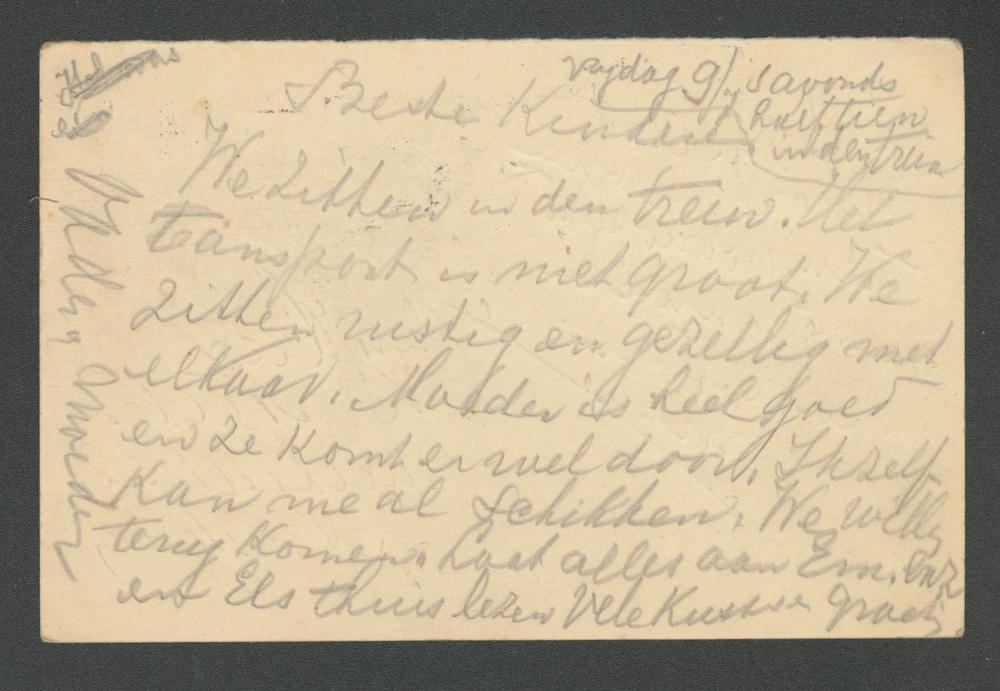 vrijdag 9/ s avonds
half tien
in den trein
Beste Kinderen
We zitten in den trein. Het
transport is niet groot. We
zitten rustig en gezellig met
elkaar. Moeder is heel goed
en ze komt er wel door. Ik zelf
kan me al schikken. We willen
terug komen. Laat alles aan Em.
en Els thuis lezen Vele Kussen
Vader, Moeder